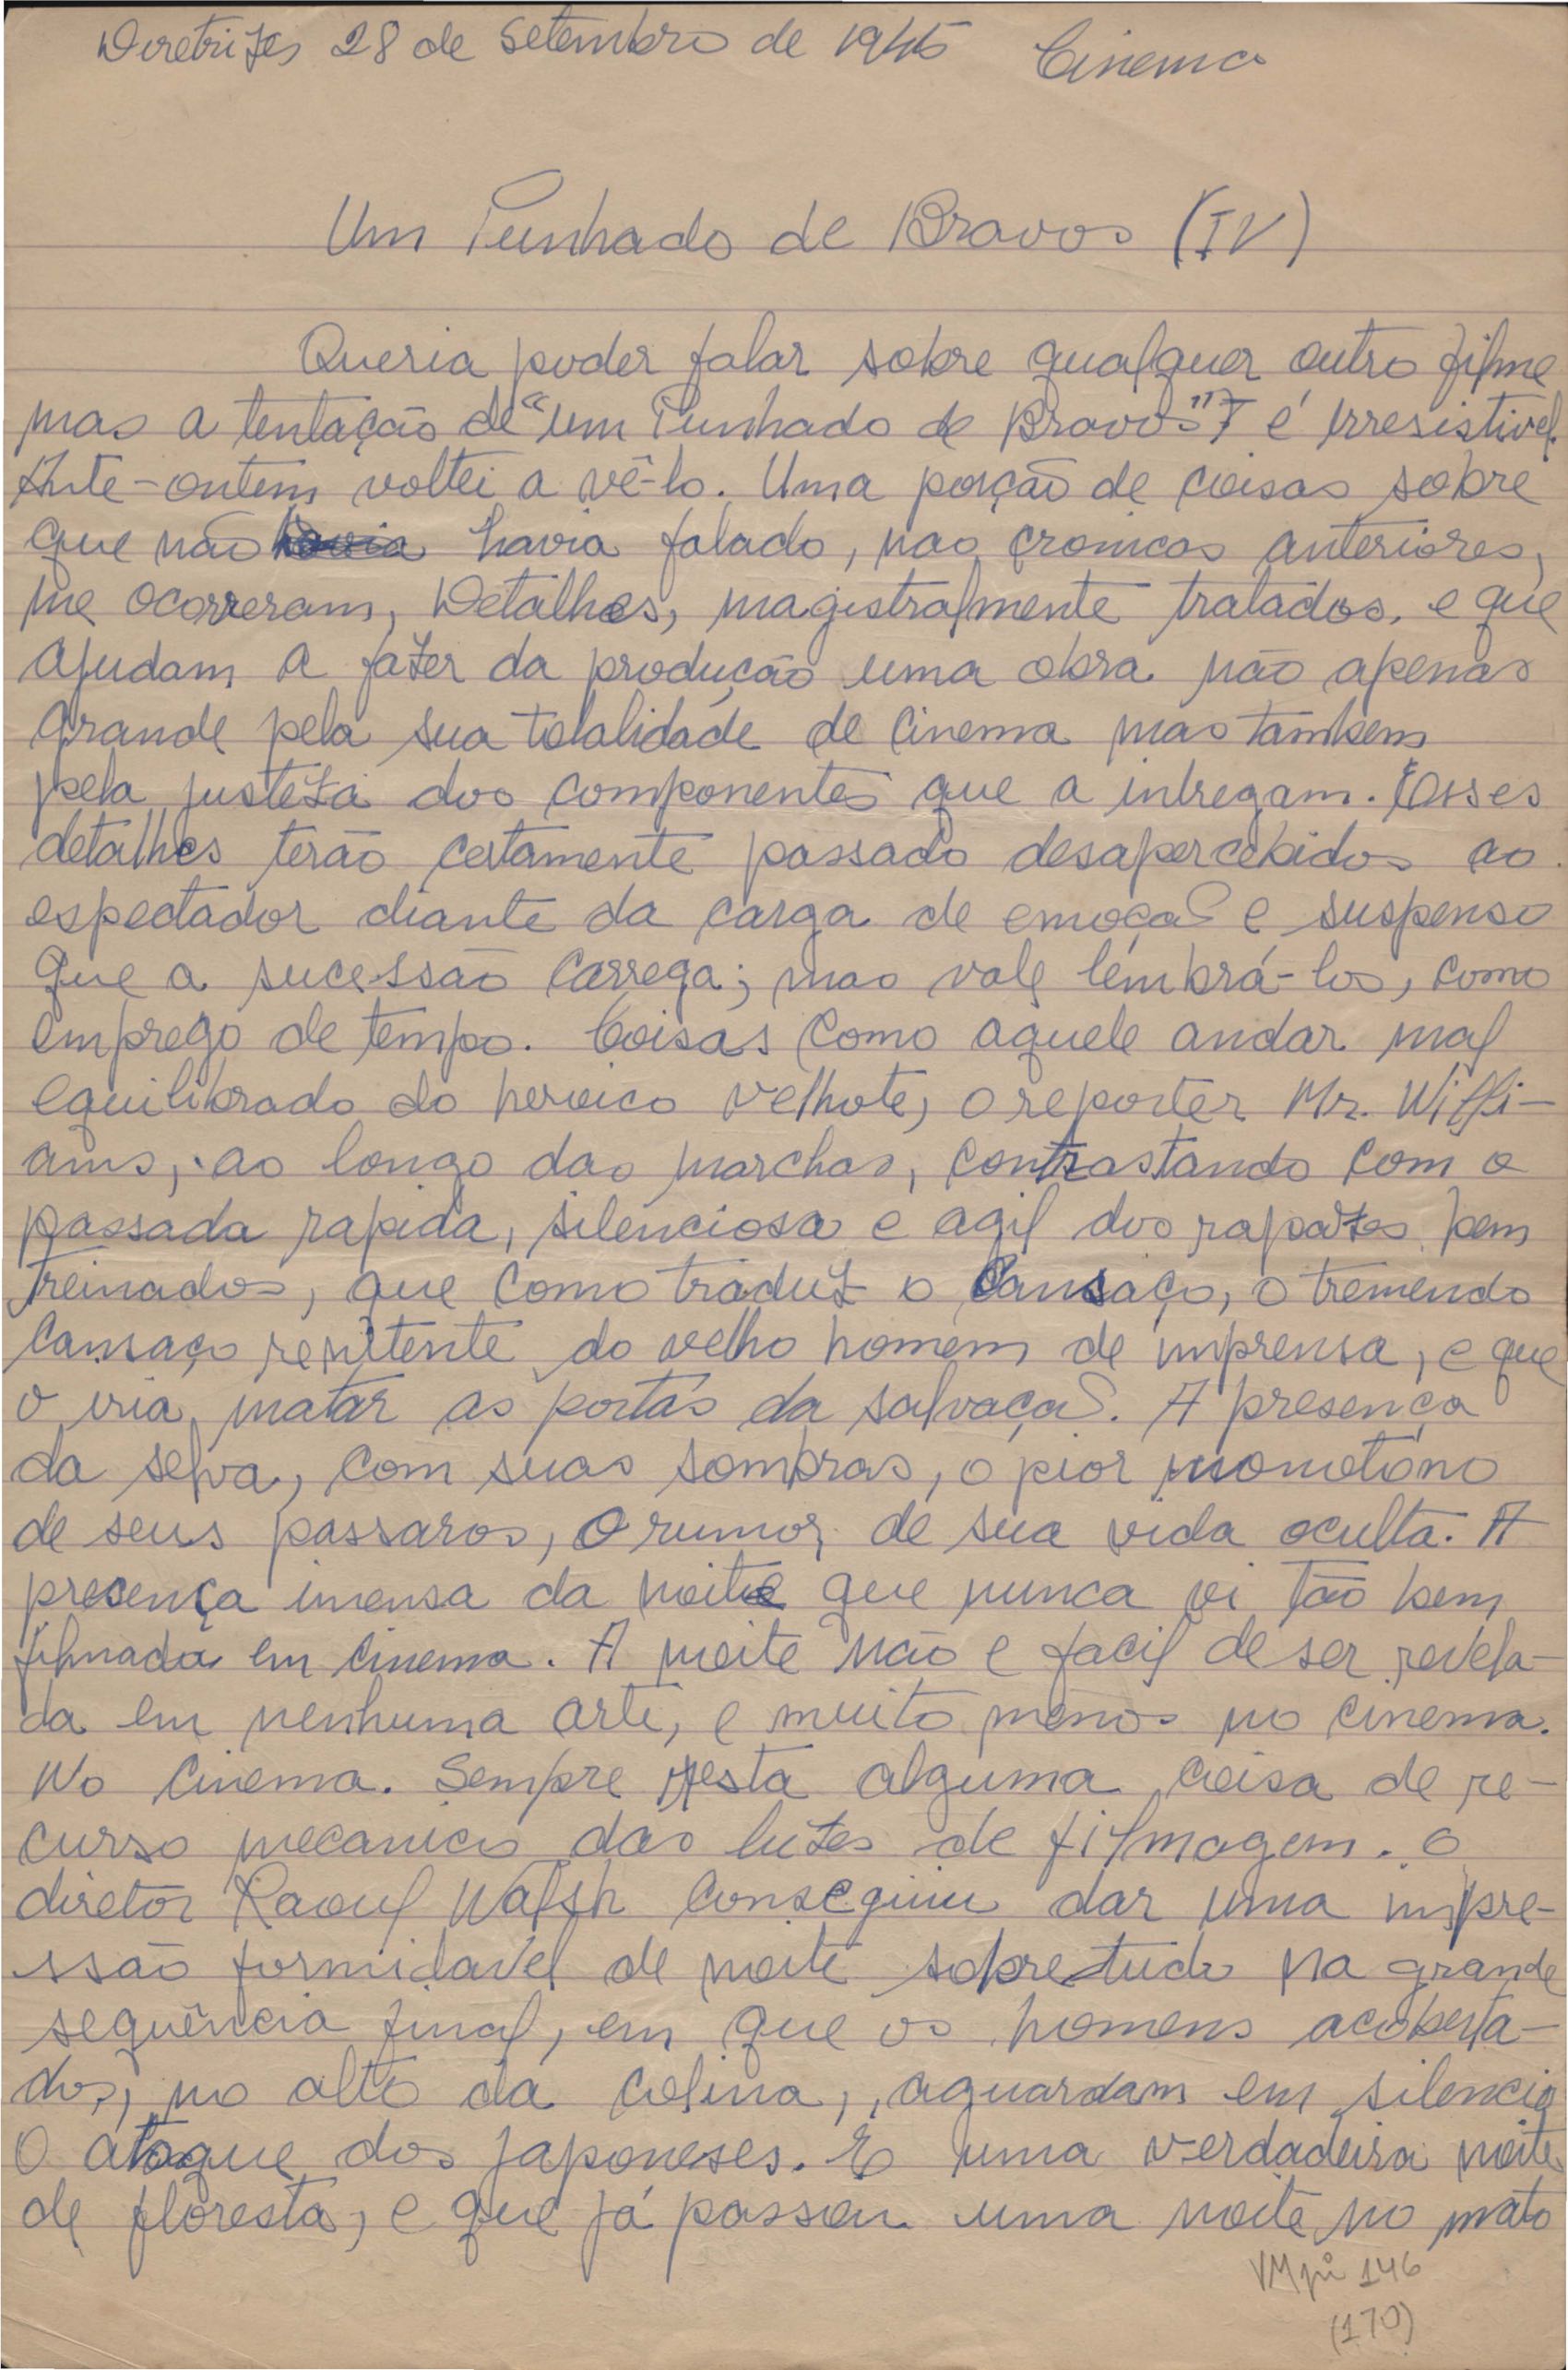 Diretrizes 28 de Setembro de 1945 Cinema
Um Punhado de Bravos (IV)
Queria poder falar sobre qualquer outro filme
mas a tentação de "um Punhado de Bravos" é irresistivel.
Ante-ontem voltei a vê-lo. Uma porção de coisas sobre
que não havia falado, nas cronicas anteriores,
me ocorreram, Detalhes, magistralmente tratados, e que
ajudam a fazer da produção uma obra não apenas
grande pela sua totalidade de cinema mas tambem
pela justeza dos componentes que a intregam. Esses
detalhes terão certamente passado desapercebidos ao
espectador diante da carga de emoção e suspenso
que a sucessão carrega; mas vale lembrá-los, como
emprego de tempo. Coisas como aquele andar mal
equilibrado do heroico velhote, o reporter Mr. Willi-
ams, ao longo das marchas, contrastando com a
passada rapida, silenciosa e agil dos rapazes bem
treinados, que como traduz o cansaço, o tremendo
cansaço renitente do velho homem de imprensa, e que
o iria matar as portas da salvação. A presença
da selva, com suas sombras, o pior monotono
de seus passaros, o rumor de sua vida oculta. A
presença imensa da noite que nunca vi tão bem
filmada em cinema. A noite não e facil de ser revela-
da em nenhuma arte, e muito menos no cinema.
No Cinema. Sempre resta alguma coisa de re-
curso mecanico das luzes de filmagem. O
diretor Raoul Walsh conseguiu dar uma impre-
ssão formidavel de noite sobretudo na grande
sequência final, em que os homens acoberta-
dos, no alto da colina, aguardam em silencio
O ataque dos japoneses. E uma verdadeira noite
de floresta, e que já passou uma noite no mato
VMpi 146
(170)